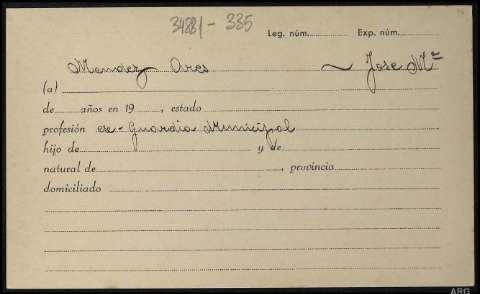 34881 - 335
Leg. núm. Exp. núm.
Mendez Ares ~ Jose Mª
(a)
de años en 19 , estado
profesión ex-Guardia Municipal
hijo de y de
natural de , provincia
domiciliado
ARG